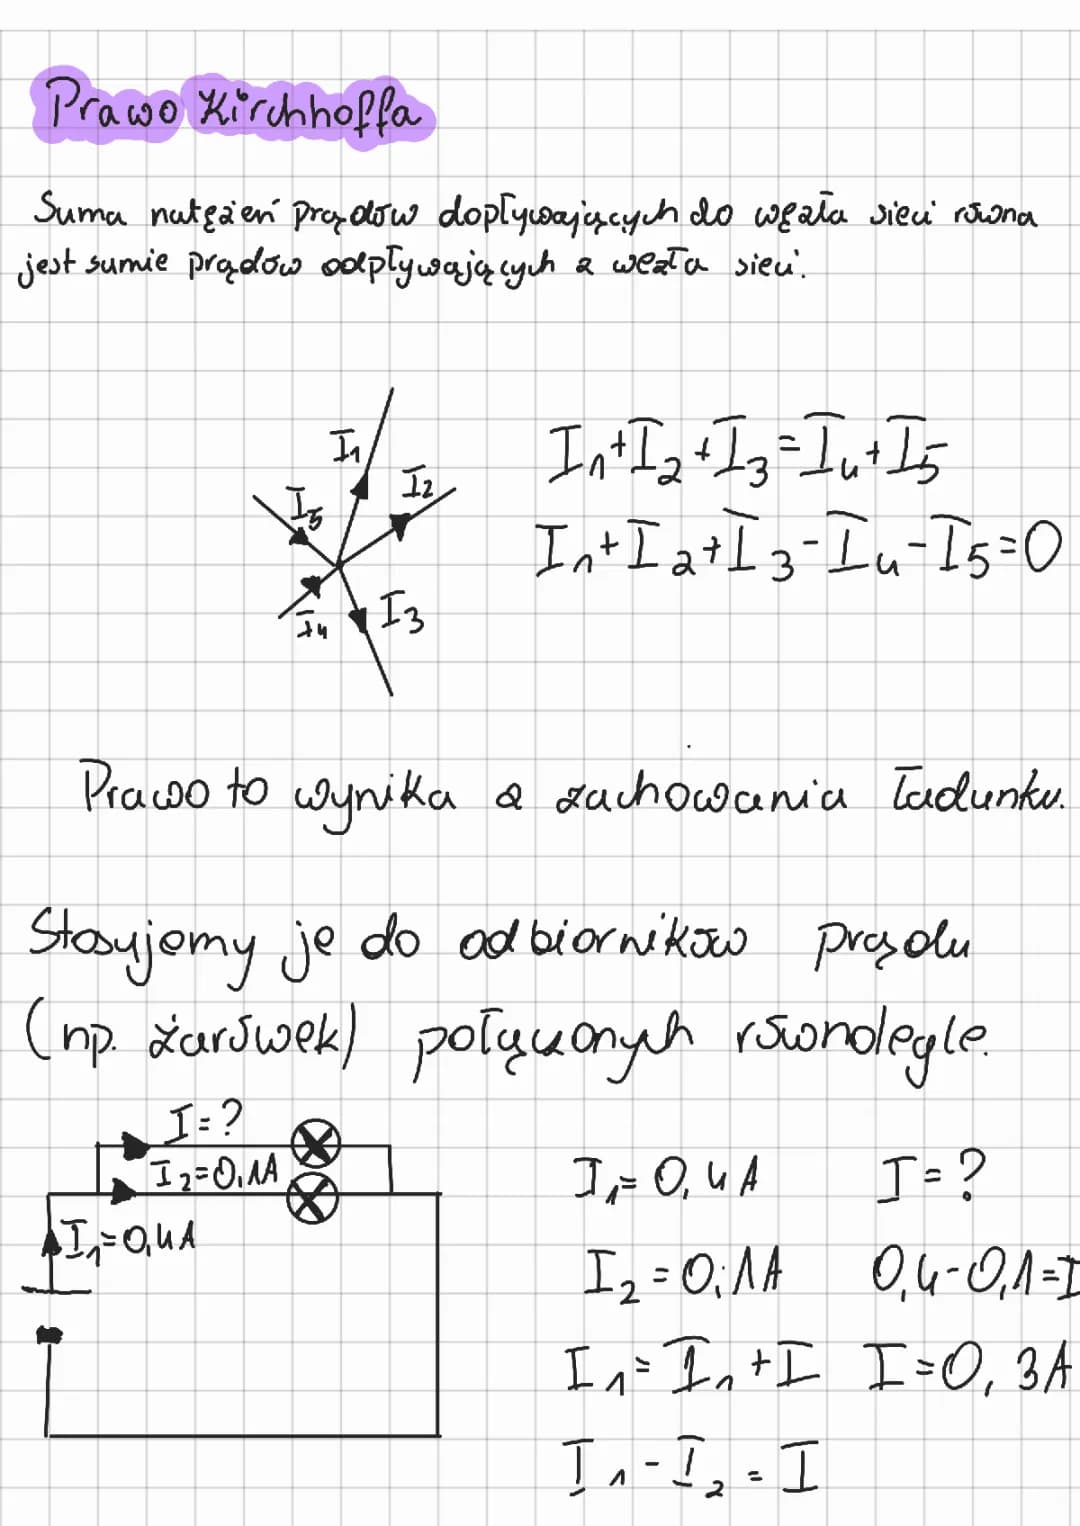 Prawo Kirchhoffa
Suma natężeń prądów dopływających do węzła sieci równa
jest sumie prądów odpływających z węzła sieci.
I₁
I₂
I₅
I₄
I₃
I₁+I₂+I₃=I₄+I₅
I₁+I₂+I₃-I₄-I₅=0
Prawo to wynika z zachowania ładunku.
Stosujemy je do odbiorników prądu
(np. żarówek) połączonych równolegle.
I=?
I₂=0,1A
I₁=0,4A
I₁=0,4A I=?
I₂=0,1A 0,4-0,1=I
I₁=I₁+I I=0,3A
I₁-I₂=I